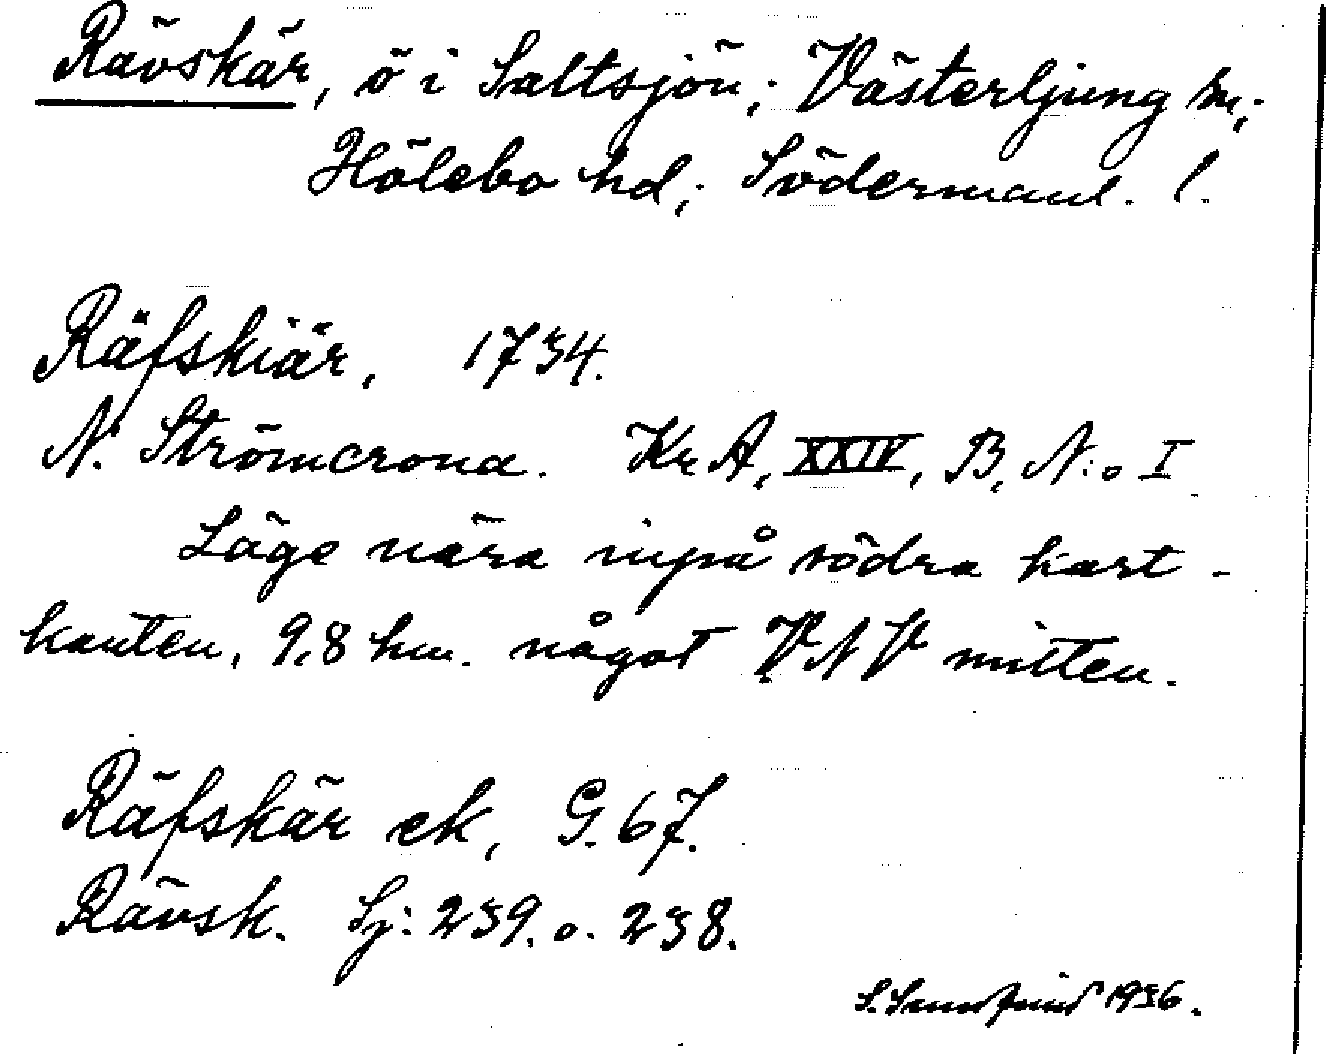 Rävskär, ö i Saltsjön; Västerljung sn;
Hölebo hd; Södermanl. l.
Räfskiär, 1734.
N. Strömcrona. Kr A, XXIV, B, N:o I
Läge nära inpå södra kart-
kanten, 9,8 km. något VNV mitten.
Räfskär ek, G. 67.
Rävsk. Sj: 239. o. 238.
1936.